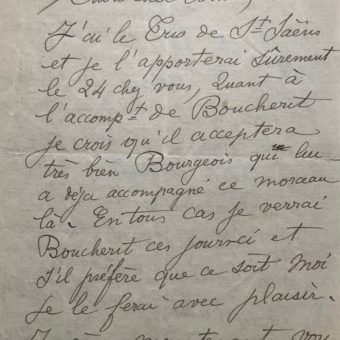 J'ai le Trio de St Saëns
et je l'apporterai sûrement
le 24 chez vous, Quant à
l'accompt de Boucherit
je crois qu'il acceptera
très bien Bourgeois qui lui
a déja accompagné ce morceau
là. En tous cas je verrai
Boucherit ces jours ci et
s'il préfère que ce soit moi
je le ferai avec plaisir.